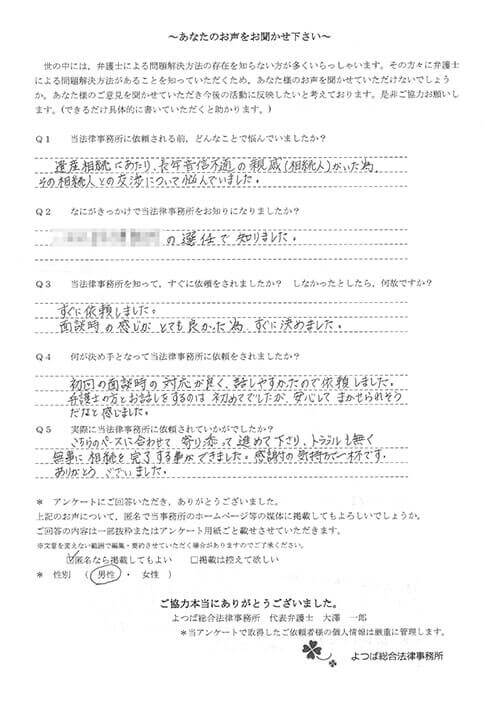 ～あなたのお声をお聞かせ下さい～
世の中には、弁護士による問題解決方法の存在を知らない方が多くいらっしゃいます。その方々に弁護士
による問題解決方法があることを知っていただくため、あなた様のお声を聞かせていただけないでしょう
か。あなた様のご意見を聞かせていただき今後の活動に反映したいと考えております。是非ご協力お願いし
ます。(できるだけ具体的に書いていただくと助かります。)
Q1 当法律事務所に依頼される前、どんなことで悩んでいましたか？
遺産相続にあたり、長年音信不通の親戚(相続人)がいた為、
その相続人との交渉について悩んでいました。
Q2 なにがきっかけで当法律事務所をお知りになりましたか？
の選任で知りました。
Q3 当法律事務所を知って、すぐに依頼をされましたか？ しなかったとしたら、何故ですか？
すぐに依頼しました。
面談時の感じがとても良かった為、すぐに決めました。
Q4 何が決め手となって当法律事務所に依頼をされましたか？
初回の面談時の対応が良く、話しやすかたので依頼しました。
弁護士の方とお話しをするのは初めてでしたが、安心してまかせられそう
だなと感じました。
Q5 実際に当法律事務所に依頼されていかがでしたか？
こちらのペースに合わせて寄り添って進めて下さり、トラブルも無く
無事に相続を完了する事ができました。感謝の気持ちで一杯です。
ありがとうございました。
＊ アンケートにご回答いただき、ありがとうございました。
上記のお声について、匿名で当事務所のホームページ等の媒体に掲載してもよろしいでしょうか。
ご回答の内容は一部抜粋またはアンケート用紙ごと載せさせていただきます。
※文意を変えない範囲で編集・要約させていただく場合がありますのでご了承ください。
☑匿名なら掲載してもよい □掲載は控えて欲しい
＊ 性別 （ 男性 ・ 女性 ）
ご協力本当にありがとうございました。
よつば総合法律事務所 代表弁護士 大澤 一郎
＊当アンケートで取得したご依頼者様の個人情報は厳重に管理します。
よつば総合法律事務所